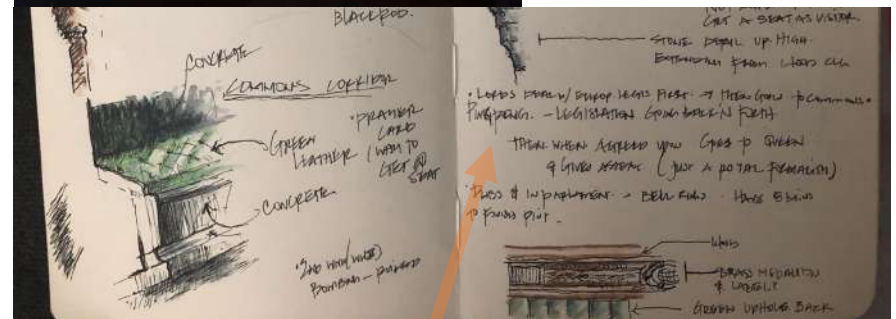 BLACK ROD.
CONCRETE
COMMONS CORRIDOR
GREEN
LEATHER
• PRAYER
CARD
/ WAY TO
GET @
SEAT
CONCRETE
• 2ND WORLD (WWII)
BOMBING – RUINED
GET A SEAT AS VISITOR
STONE DETAIL UP HIGH
EXTENDING FROM WOOD
• LORDS DEAL W/ EUROP LEGIS FIRST → THEN GOES TO COMMONS •
PINGPONG. – LEGISLATION GOING BACK 'N FORTH
THEN WHEN AGREED UPON GOES TO QUEEN
& GIVES ASSENT (JUST A ROYAL FORMALITY)
• PUBS IN PARLIAMENT → BELL RINGS – HAVE 8 MINS
TO FINISH PINT.
WOOD
BRASS MEDALLION
& LABEL?
GREEN UPHOLS BACK